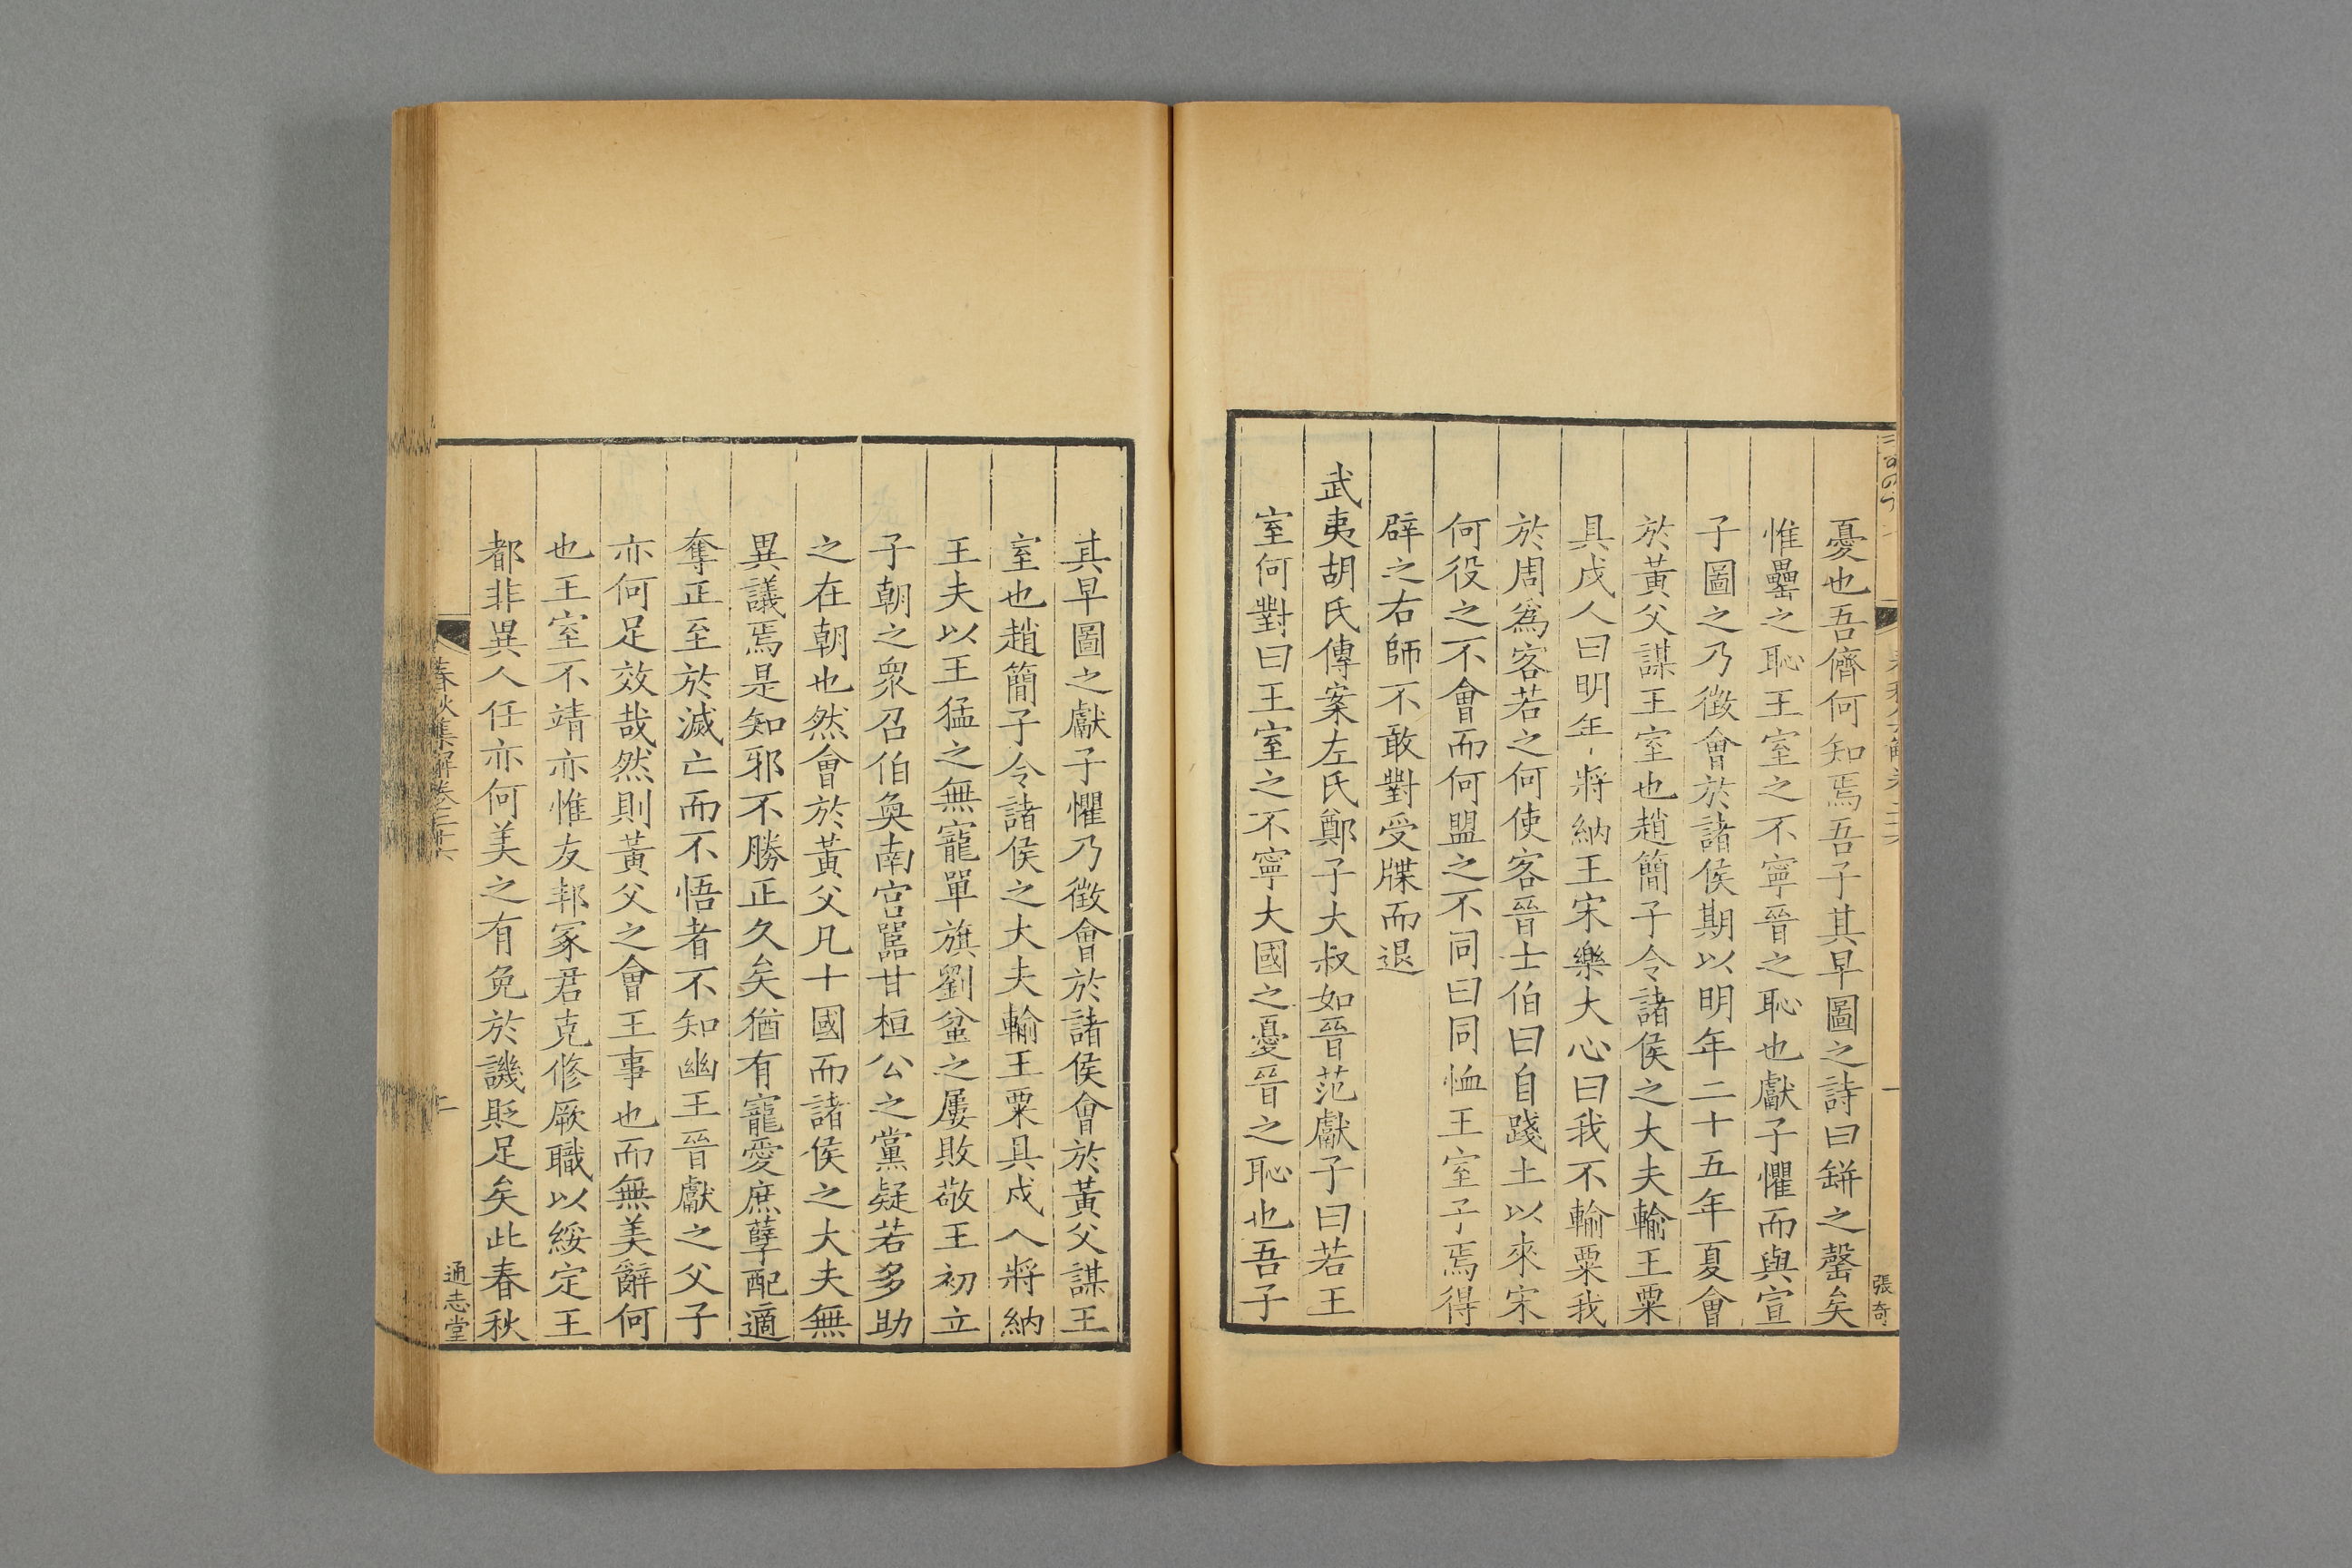 憂也吾儕何知焉吾子其早圖之詩曰缾之罄矣
惟罍之恥王室之不寧晉之恥也獻子懼而與宣
子圖之乃徵會於諸侯期以明年二十五年夏會
於黃父謀王室也趙簡子令諸侯之大夫輸王粟
具戍人曰明年將納王宋樂大心曰我不輸粟我
於周爲客若之何使客晉士伯曰自踐土以來宋
何役之不會而何盟之不同曰同恤王室子焉得
辟之右師不敢對受牒而退
武夷胡氏傳案左氏鄭子大叔如晉范獻子曰若王
室何對曰王室之不寧大國之憂晉之恥也吾子
張奇
其早圖之獻子懼乃徵會於諸侯會於黃父謀王
室也趙簡子令諸侯之大夫輸王粟具戍人將納
王夫以王猛之無寵單旗劉盆之屢敗敬王初立
子朝之衆召伯奐南宮嚚甘桓公之黨疑若多助
之在朝也然會於黃父凡十國而諸侯之大夫無
異議焉是知邪不勝正久矣猶有寵愛庶孽配適
奪正至於滅亡而不悟者不知幽王晉獻之父子
亦何足效哉然則黃父之會王事也而無美辭何
也王室不靖亦惟友邦冢君克修厥職以綏定王
都非異人任亦何美之有免於譏貶足矣此春秋
春秋集解卷二十六
通志堂